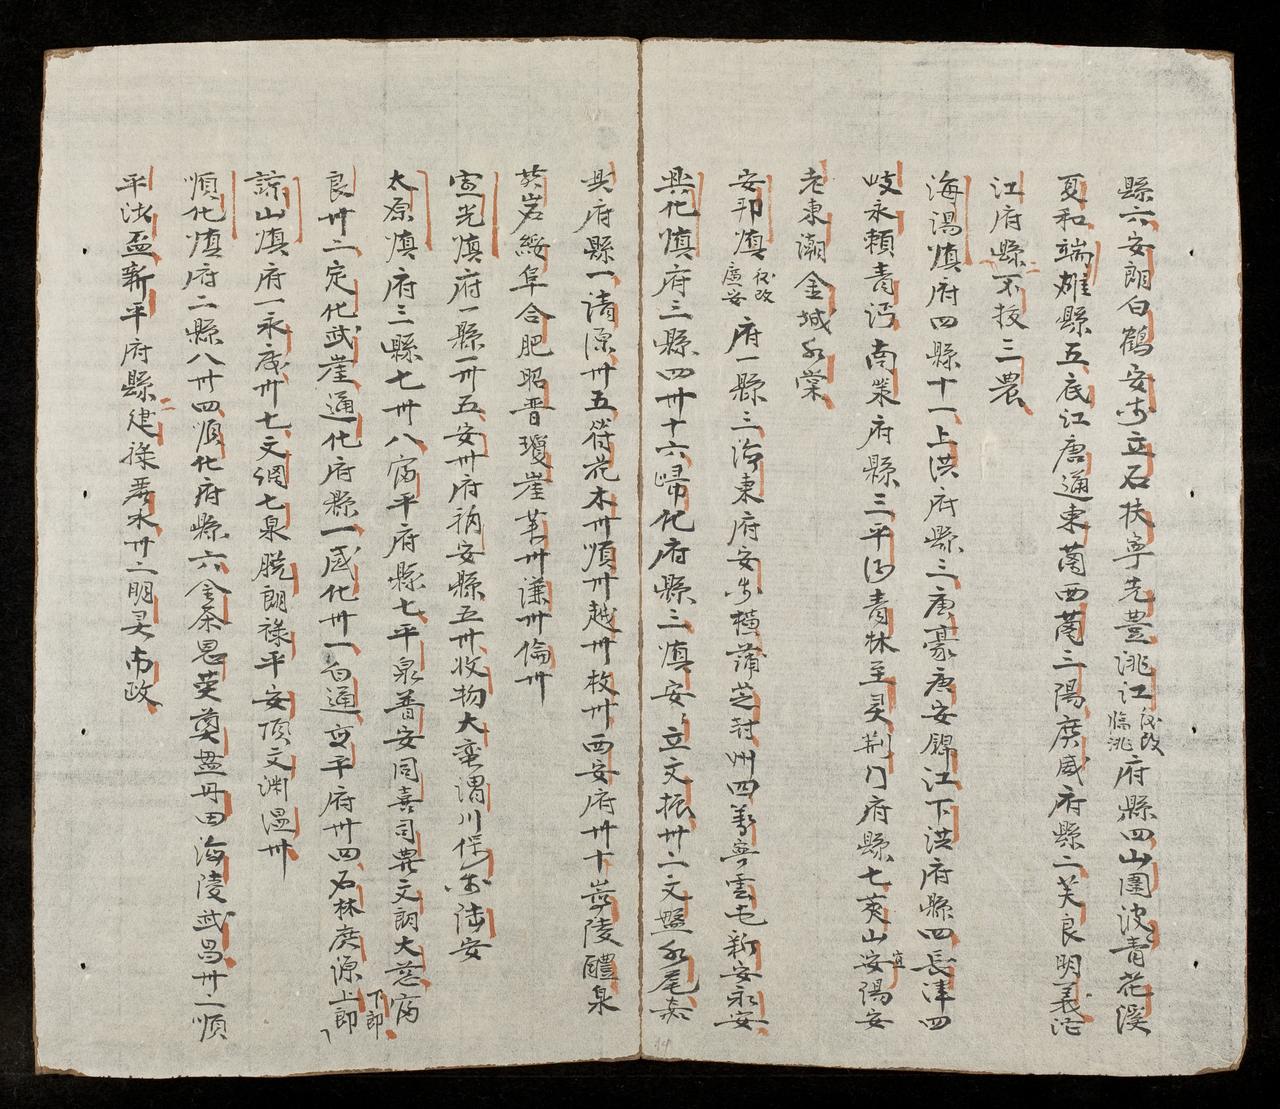 縣六安朗白鶴安步立石扶寧先豊洮江後改臨洮府縣四山圍波青花溪
夏和端雄縣五底江唐通東蘭西蘭三陽廣威府縣二芙良明義沱
江府縣二不拔三農
海陽慎府四縣十一上洪府縣三唐豪唐安錦江下洪府縣四長津四
岐永賴青沔南策府縣三平河青林至灵荆门府縣七夾山安陽安宜
老東潮金城水棠
安邦慎後改廣安府一縣三海東府安步橫蒲芝封州四萬寧雲屯新安永安
興化慎府三縣四卅十六歸化府縣三慎安立文振卅二文盤水尾嘉
興府縣一清源卅五符花木卅順卅越卅枚卅西安府卅十嵾陵醴泉
黄岩綏阜合肥昭晋瓊崖萊卅謙卅倫卅
宣光慎府一縣一卅五安卅府衲安縣五卅收物大蛮渭川保樂陆安
太原慎府三縣七卅八富平府縣七平泉普安同喜司農文朗大慈富
良卅二定化武崖通化府縣一感化卅一白通高平府卅四石林廣源上郎下郎
諒山慎府一永底卅七文網七泉脱朗祿平安順文渊温卅
順化慎府二縣八卅四順化府縣六金茶思荣奠盘丹田海陵武昌卅二順
平沙盃新平府縣二建祿麗水卅二明灵布政